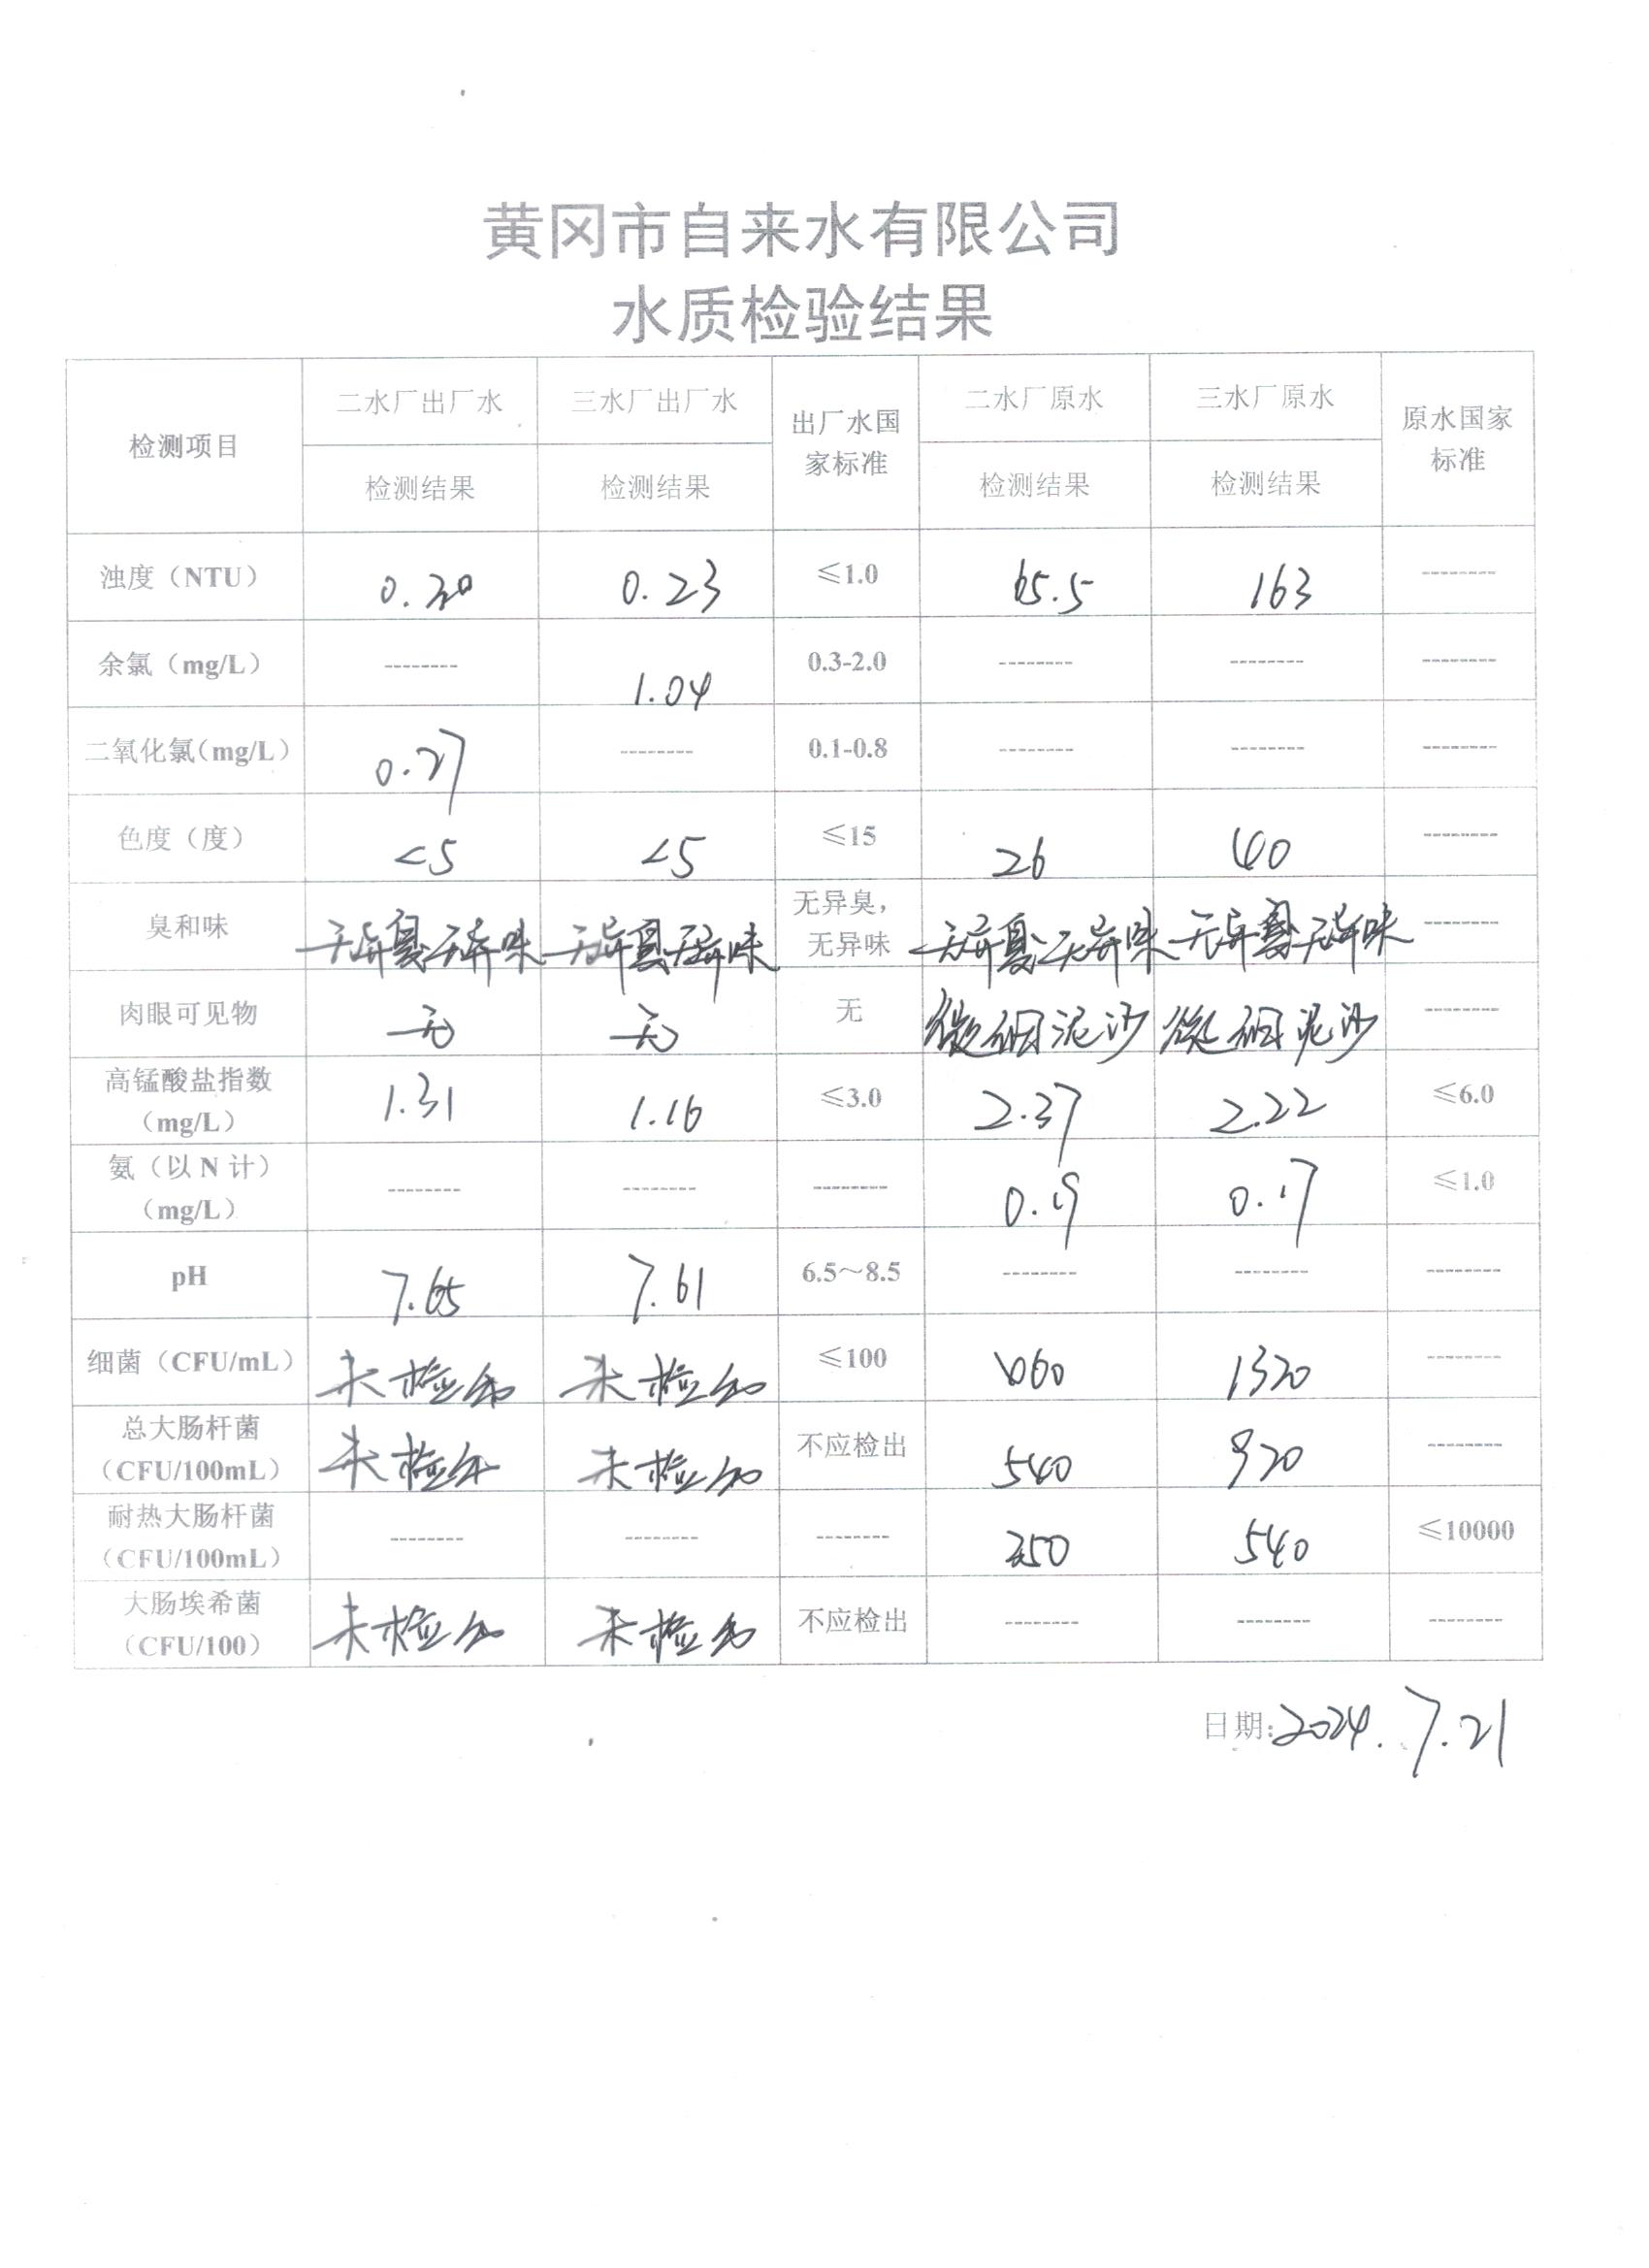 黄冈市自来水有限公司
水质检验结果
检测项目 二水厂出厂水 三水厂出厂水 出厂水国家标准 二水厂原水 三水厂原水 原水国家标准
检测结果 检测结果 检测结果 检测结果
浊度（NTU） 0.20 0.23 ≤1.0 65.5 163 --------
余氯（mg/L） -------- 1.04 0.3-2.0 -------- -------- --------
二氧化氯（mg/L） 0.27 -------- 0.1-0.8 -------- -------- --------
色度（度） <5 <5 ≤15 26 40 --------
臭和味 无异臭无异味 无异臭无异味 无异臭，无异味 无异臭无异味 无异臭无异味 --------
肉眼可见物 无 无 无 微细泥沙 微细泥沙 --------
高锰酸盐指数（mg/L） 1.31 1.16 ≤3.0 2.37 2.22 ≤6.0
氨（以N计）（mg/L） -------- -------- -------- 0.19 0.17 ≤1.0
pH 7.65 7.61 6.5～8.5 -------- -------- --------
细菌（CFU/mL） 未检出 未检出 ≤100 1060 1320 --------
总大肠杆菌（CFU/100mL） 未检出 未检出 不应检出 540 920 --------
耐热大肠杆菌（CFU/100mL） -------- -------- -------- 350 540 ≤10000
大肠埃希菌（CFU/100） 未检出 未检出 不应检出 -------- -------- --------
日期：2024.7.21